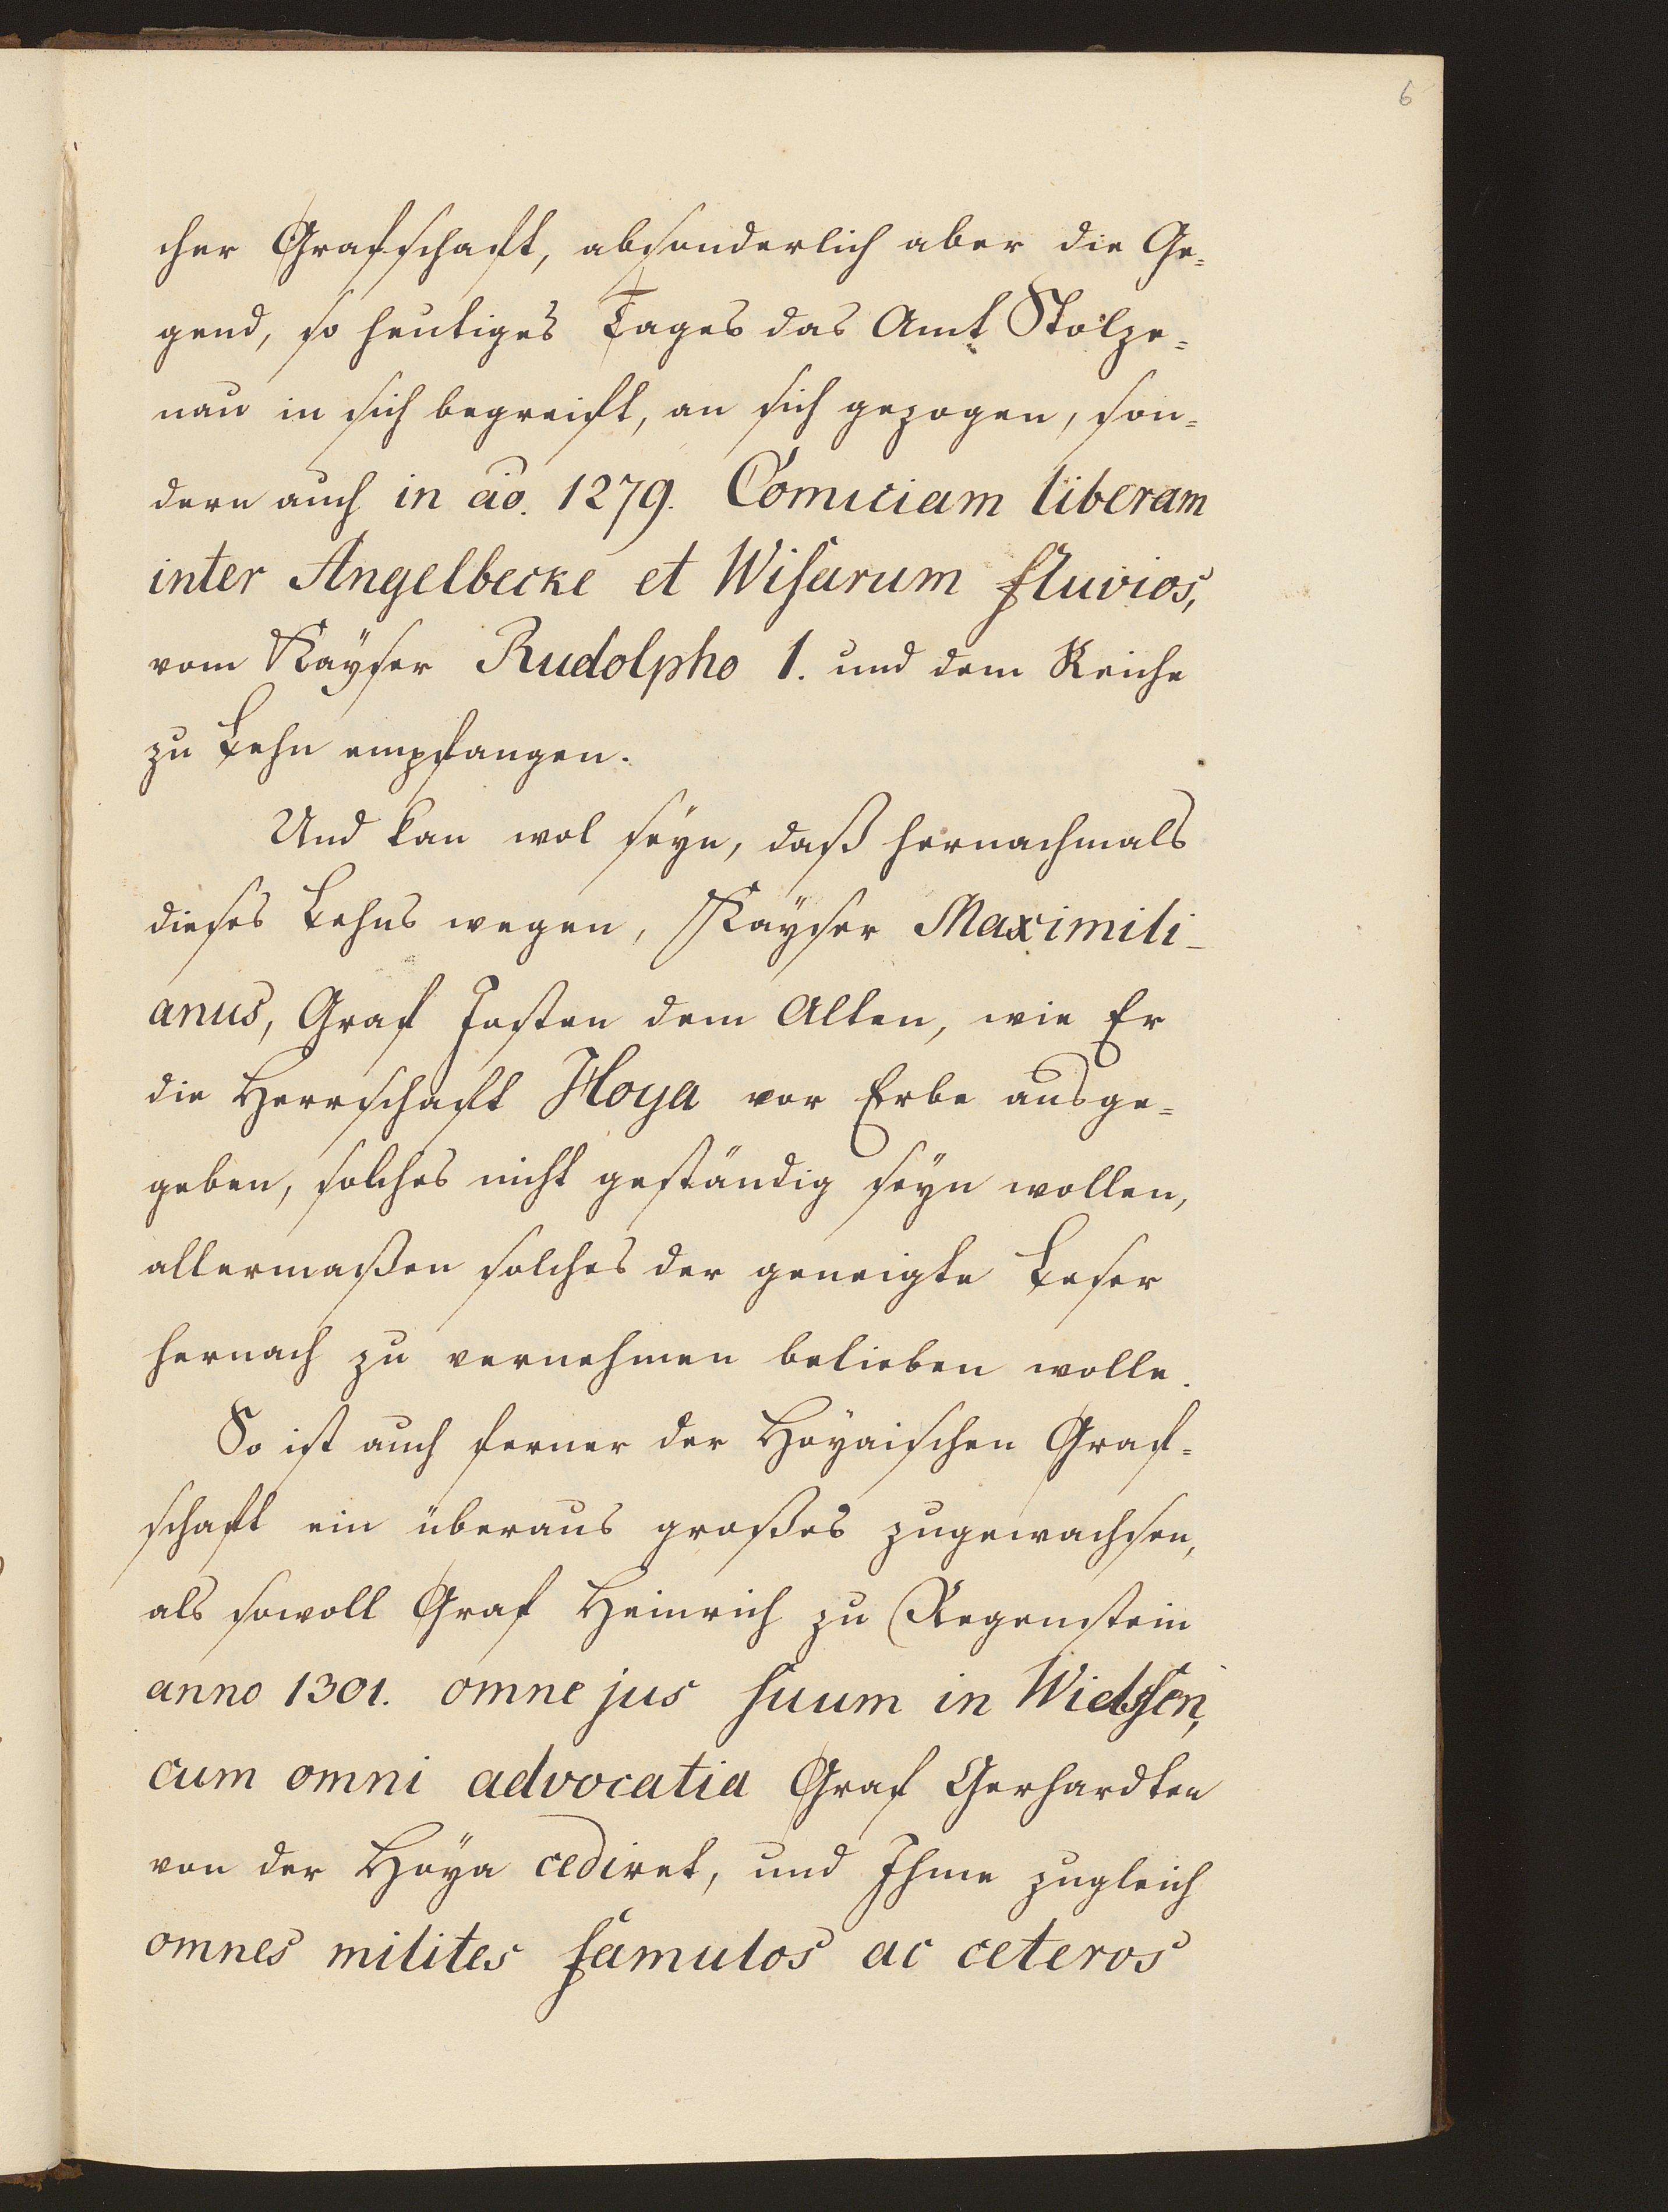 6
cher Grafschaft, absonderlich aber die Ge=
gend, so heutiges Tages das Amt Stolze=
nau in sich begreift, an sich gezogen, son=
dern auch in ao. 1279. Comiciam liberam
inter Angelbecke et Wisarum fluvios,
vom Kayser Rudolpho 1. und dem Reiche
zu Lehn empfangen.
Und kan wol seyn, daß hernachmals
dieses Lehns wegen, Kayser Maximili-
anus, Graf Josten dem Alten, wie Er
die Herrschaft Hoya vor Erbe ausge=
geben, solches nicht geständig seyn wollen,
allermaßen solches der geneigte Leser
hernach zu vernehmen belieben wolle.
So ist auch ferner der Hoyaischen Graf=
schaft ein überaus großes zugewachsen,
als sowoll Graf Heinrich zu Regenstein
anno 1301. omne jus suum in Wielssen,
cum omni advocatia Graf Gerhardten
von der Hoya cediret, und Ihme zugleich
omnes milites famulos ac ceteros